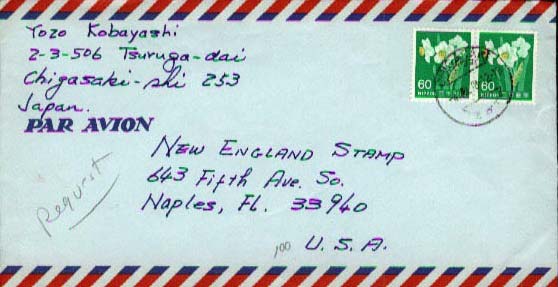 Yozo Kobayashi
2-3-506 Tsuruga-dai
Chigasaki-shi 253
Japan.
PAR AVION
60 NIPPON 日本郵便
60 NIPPON 日本郵便
New England Stamp
643 Fifth Ave. So.
Naples, FL. 33940
U.S.A.
request
100